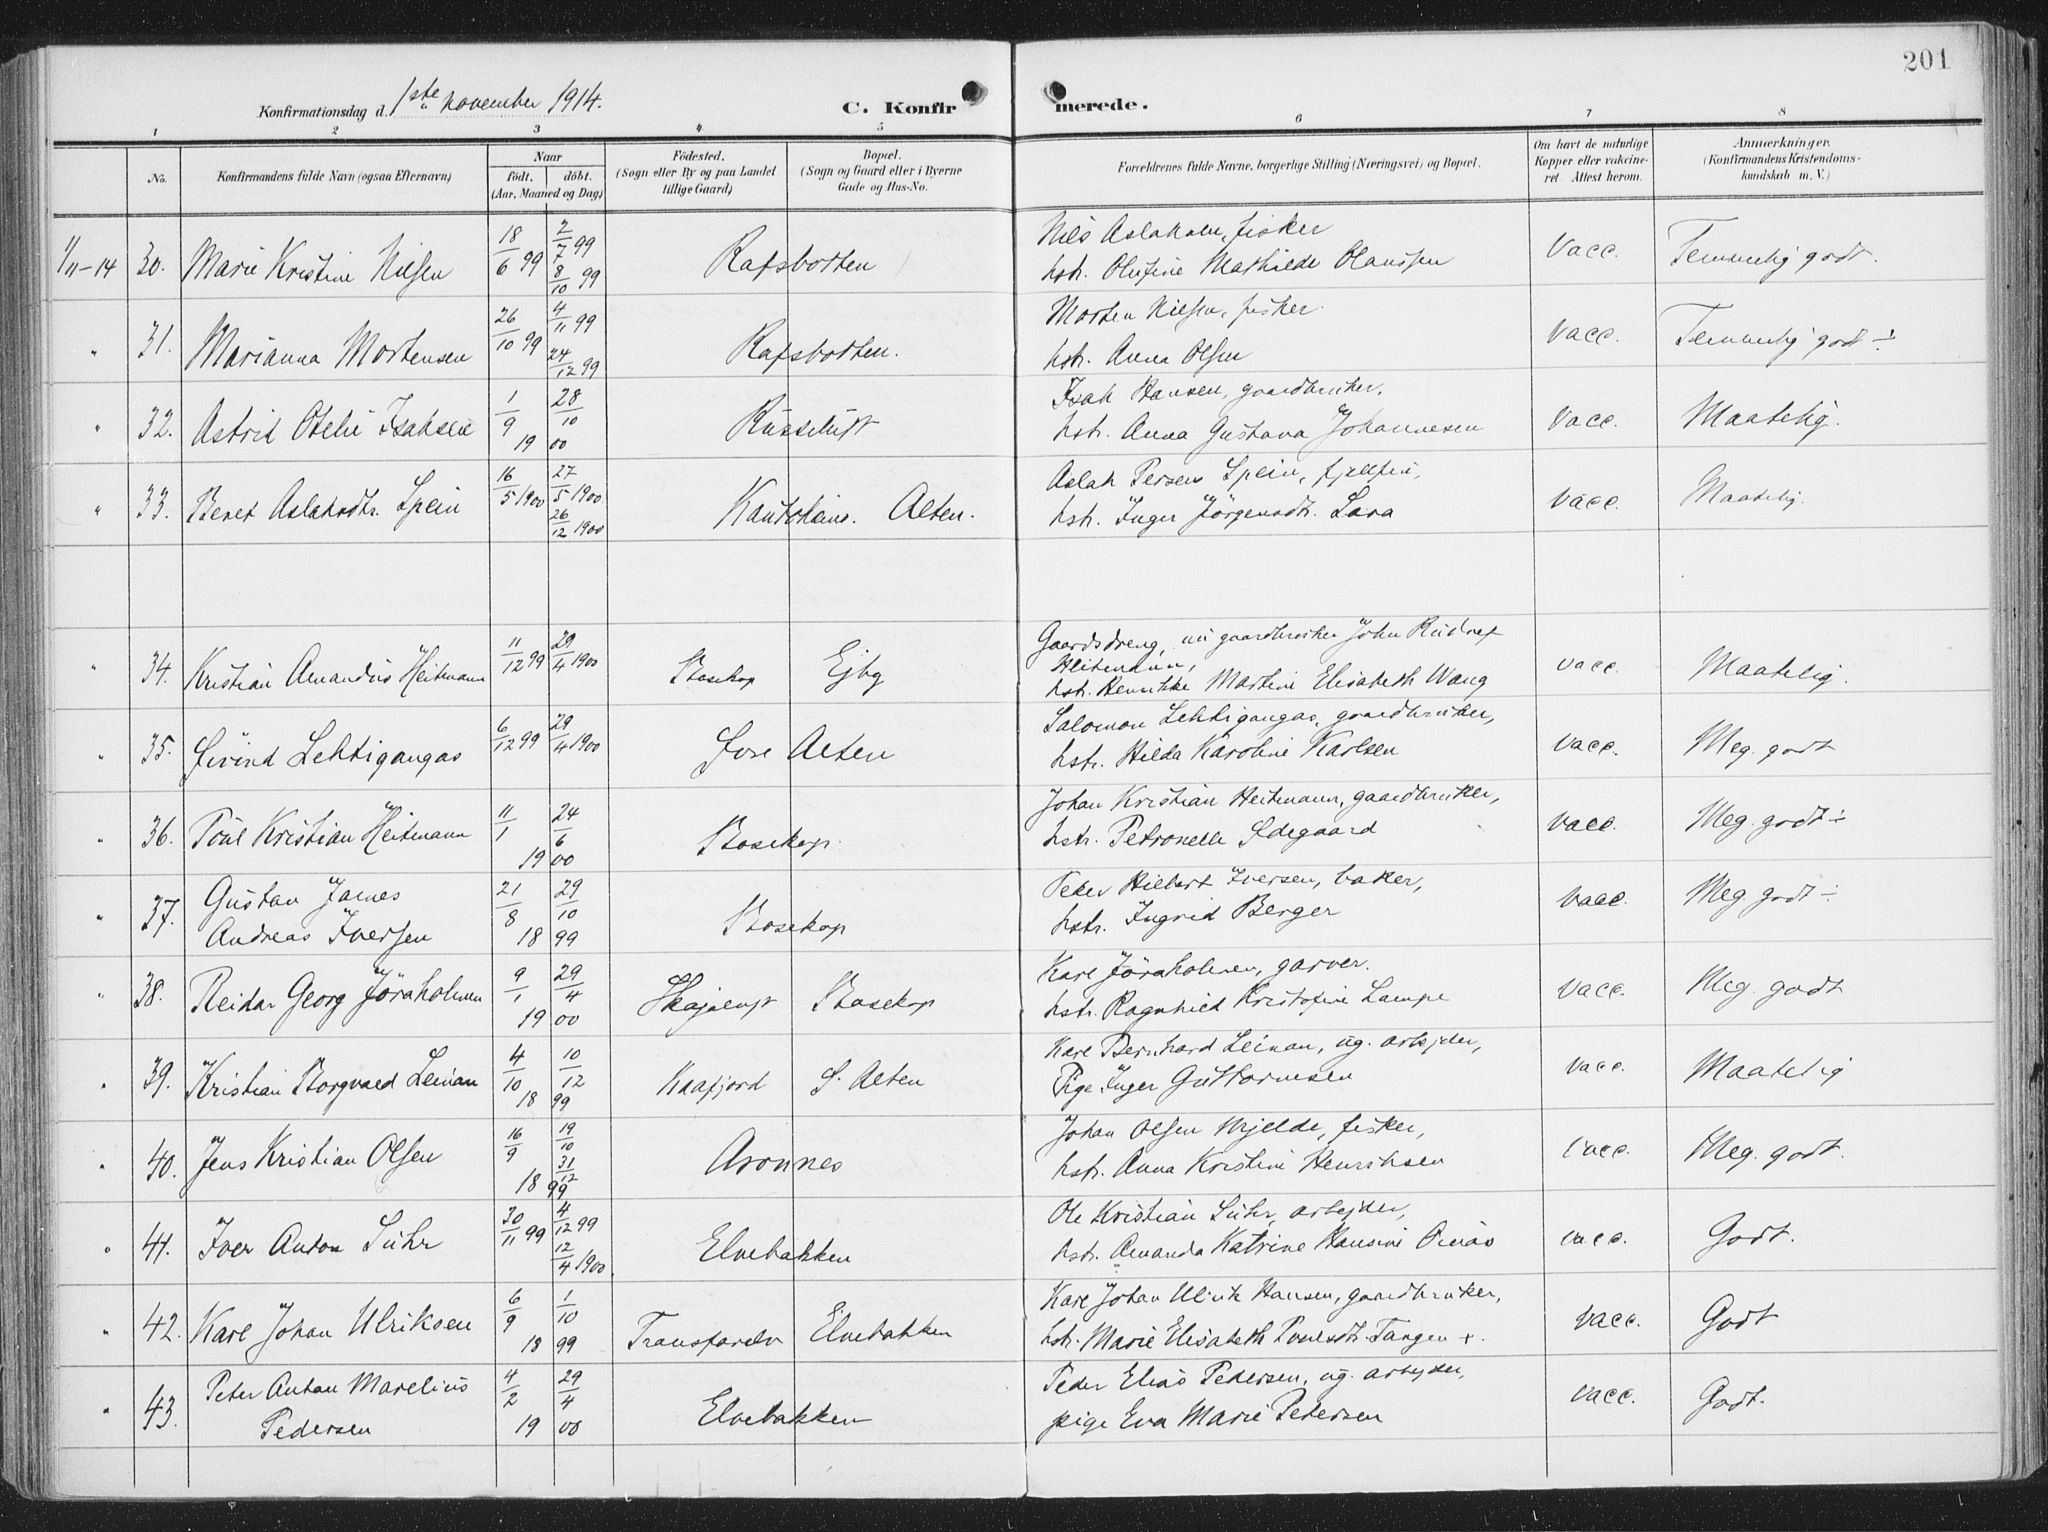 201
Konfirmationsdag d. 1ste november 1914.
C. Konfirmerede.
1 2 3 4 5 6 7 8
No.
Konfirmandens fulde Navn (ogsaa Efternavn)
Naar
födt. döbt.
(Aar, Maaned og Dag)
Födested.
(Sogn eller By og paa Landet
tillige Gaard)
Bopæl.
(Sogn og Gaard eller i Byerne
Gade og Hus-No.
Forældrenes fulde Navne, borgerlige Stilling (Næringsvei) og Bopæl.
Om havt de naturlige
Kopper eller vakcine-
ret. Attest herom.
Anmærkninger.
(Konfirmandens Kristendoms-
kundskab m. V.)
1/11-14 30. Marie Kristine Nielsen 18/6 99 2/7 99 8/10 99 Rafsbotten
Nils Aslaksen, fisker
hstr. Olufine Mathilde Olaussen
Vacc. Temmelig godt.
" 31. Marianna Mortensen 26/10 99 4/11 99 24/12 99 Rafsbotten.
Morten Nielsen, fisker
hstr. Anna Olsen
Vacc. Temmelig godt ÷
" 32. Astrid Otelie Isaksen 1/9 28/10 1900 Russeluft
Isak Hansen, gaardbruker,
hstr. Anna Gustava Johannesen
Vacc. Maatelig.
" 33. Beret Aslaksdtr. Spein 16/5 1900 27/5 1900 26/12 1900 Kautokeino. Alten.
Aslak Persen Spein, fjellfin,
hstr. Inger Jörgensdtr. Sara
Vacc. Maatelig.
" 34. Kristian Amandus Heitmann 11/12 99 29/4 1900 Bosekop Ejby
Gaardsdreng, nu gaardbruker John Rudolf
Heitmann,
hstr. Henrikke Martine Elisabeth Wang
Vacc. Maatelig.
" 35. Eivind Lehtigangas 6/12 99 29/4 1900 Övre Alten
Salomon Lehtigangas, gaardbruker,
hstr. Hilda Karoline Karlsen
Vacc. Meg. godt
" 36. Poul Kristian Heitmann 11/1 24/6 1900 Bosekop.
Johan Kristian Heitmann, gaardbruker,
hstr. Petronelle Ödegaard
Vacc. Meg. godt ÷
" 37. Gustav James
Andreas Iversen 21/8 29/10 1899 Bosekop
Peter Hilbert Iversen, baker,
hstr. Ingrid Berger
Vacc. Meg. godt ÷
" 38. Reidar Georg Jöraholmen 9/1 29/4 1900 Skajaluft Bosekop
Karl Jöraholmen, garver.
hstr. Ragnhild Kristofine Lampe
Vacc. Meg. godt
" 39. Kristian Borgvald Leinan 4/10 10/12 1899 Kaafjord S. Alten
Karl Bernhard Leinan, ug. arbejder,
Pige Inger Guttormsen
Vacc. Maatelig
" 40. Jens Kristian Olsen 16/9 19/10 31/12 1899 Aronnes
Johan Olsen Mjelde, fisker,
hstr. Anna Kristine Henriksen
Vacc. Meg. godt.
" 41. Iver Anton Suhr 30/11 99 4/12 99 12/4 1900. Elvebakken
Ole Kristian Suhr, arbejder,
hstr. Amanda Katrine Hansine Oinäs
Vacc. Godt.
" 42. Karl Johan Ulriksen 6/9 1/10 1899 Transfarelv Elvebakken
Karl Johan Ulrik Hansen, gaardbruker,
hstr. Marie Elisabeth Poulsdtr. Tangen +.
Vacc. Godt
" 43. Peter Anton Marelius
Pedersen 4/2 29/4 1900 Elvebakken
Peder Elias Pedersen, ug. arbejder,
pige Eva Marie Petersen
Vacc. Godt.